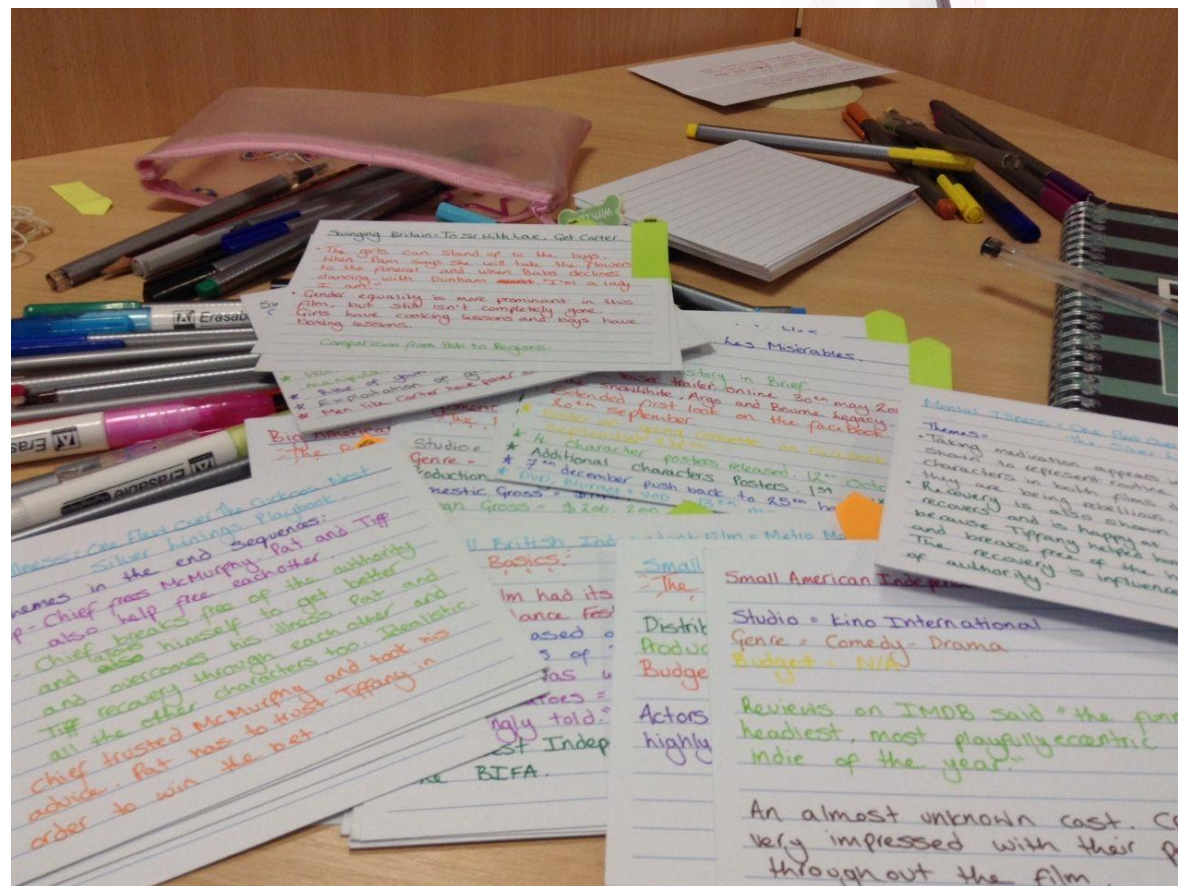 Swinging Britain = To Sir With Love, Get Carter.
• The girls can stand up to the boys.
When Pam says she will take the flowers
to the funeral and when Babs declines
dancing with Denham "I'm a lady
I am."
• Gender equality is more prominent in this
film, but still isn't completely gone.
Girls have cooking lessons and boys have
boxing lessons.
Comparison from Hub to Regions.
* Rise of
* Exploitation of
* Men like Carter have power
Erasable
Les Misérables.
story in Brief.
teaser trailer online 30th may 20
Snowwhite, Argo and Bourne Legacy.
Extended first look on the facebook
20th september
* 4 character posters released. 12th Octo
* Additional characters Posters 1st
* 7th december push back to 25th
* DVD, Bluray + VOD
Big American
The
Studio =
Genre =
Production
mestic Gross = $
gn Gross = $ 200, 200
Mental Illness = One Flew Over
the Silver Li
Themes =
• Taking medication appears
should to represent routine
characters in both films
they are being rebellious.
• Recovery is also shown
recovery and is happy at
because Tiffany helped him
and breaks free of the h
The recovery is influence
of authority.
llness: One Flew Over The Cuckoos Nest
Silver Linings Playbook
hemes in the end sequences:
p - Chief frees McMurphy. Pat and Tiff
also help free each other.
Chief breaks free of the authority
and himself to get better
and overcomes his illness. Pat and
Tiff recovery through each other and
all the other characters too. Idealistic.
Chief trusted McMurphy and took his
advice. Pat has to trust Tiffany in
order to win the bet.
ll British Independent Film = Metro Ma
Basics:
lm had its
ance Fes
ased o
s of
was
roes =
ngly told."
st Indep
he BIFA.
Small
The
Distrib
Produc
Budge
Actors
highly
Small American Indepen
Studio = Kino International
Genre = Comedy - Drama
Budget = N/A
Reviews on IMDB said "the funn
headiest, most playfully eccentric
indie of the year."
An almost unknown cast. C
very impressed with their p
throughout the film.